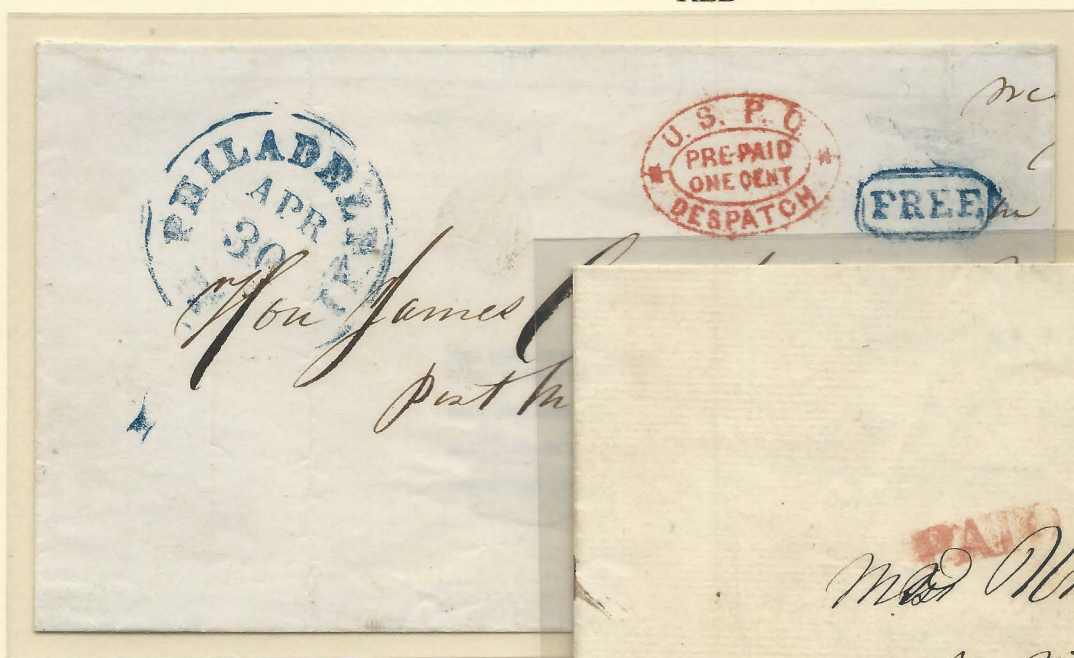 PHILADELPHIA
APR
30
U.S.P.O.
PRE-PAID
ONE CENT
DESPATCH
FREE
Hon James
Post M
PAID